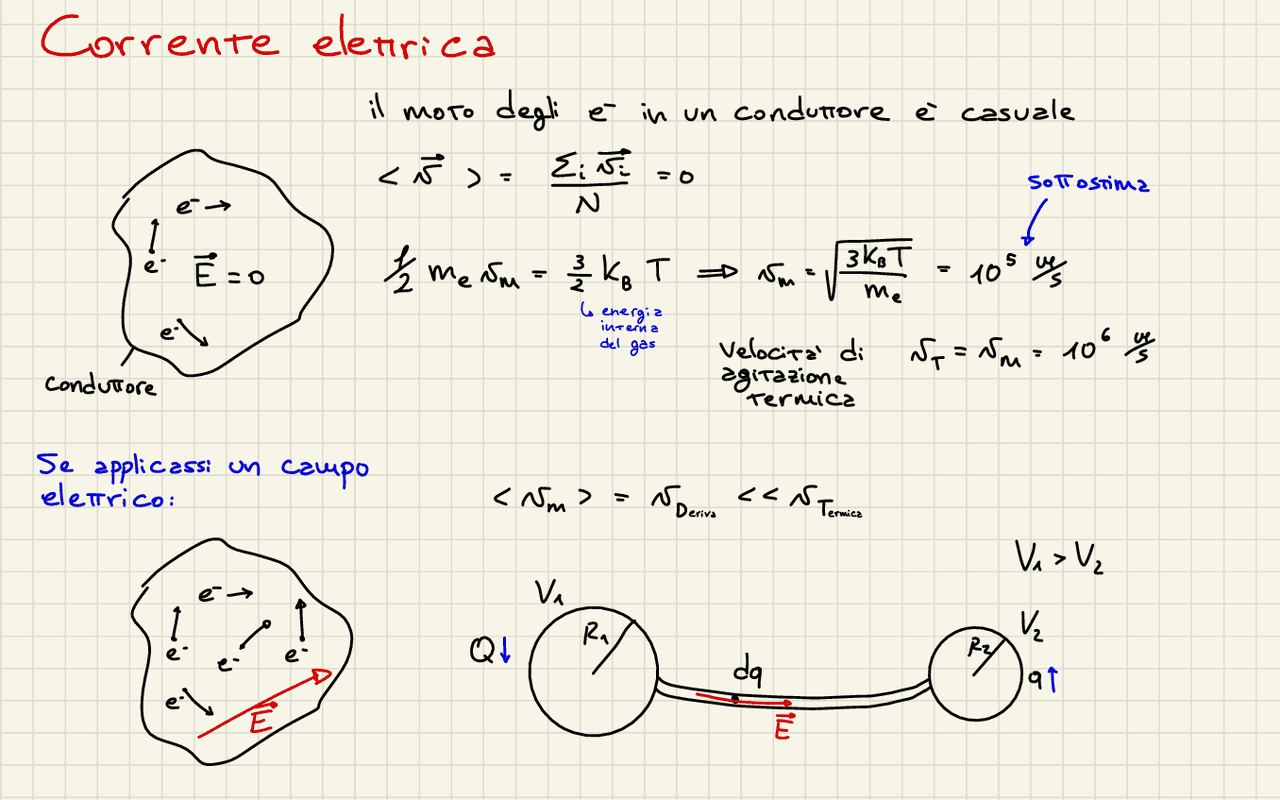 Corrente elettrica
il moto degli e⁻ in un conduttore è casuale
< v⃗ > = Σᵢ v⃗ᵢ / N = 0
sottostima
e⁻
e⁻
E⃗ = 0
e⁻
conduttore
1/2 mₑ vₘ = 3/2 k_B T ⟹ vₘ = √(3 k_B T / mₑ) = 10⁵ m/s
↳ energia
interna
del gas
Velocità di
agitazione
termica
v_T = v_M = 10⁶ m/s
Se applicassi un campo
elettrico:
< vₘ > = v_Deriva << v_Termica
e⁻
e⁻
e⁻
e⁻
e⁻
E⃗
V₁ > V₂
V₁
R₁
Q↓
dq
E⃗
V₂
R₂
q↑